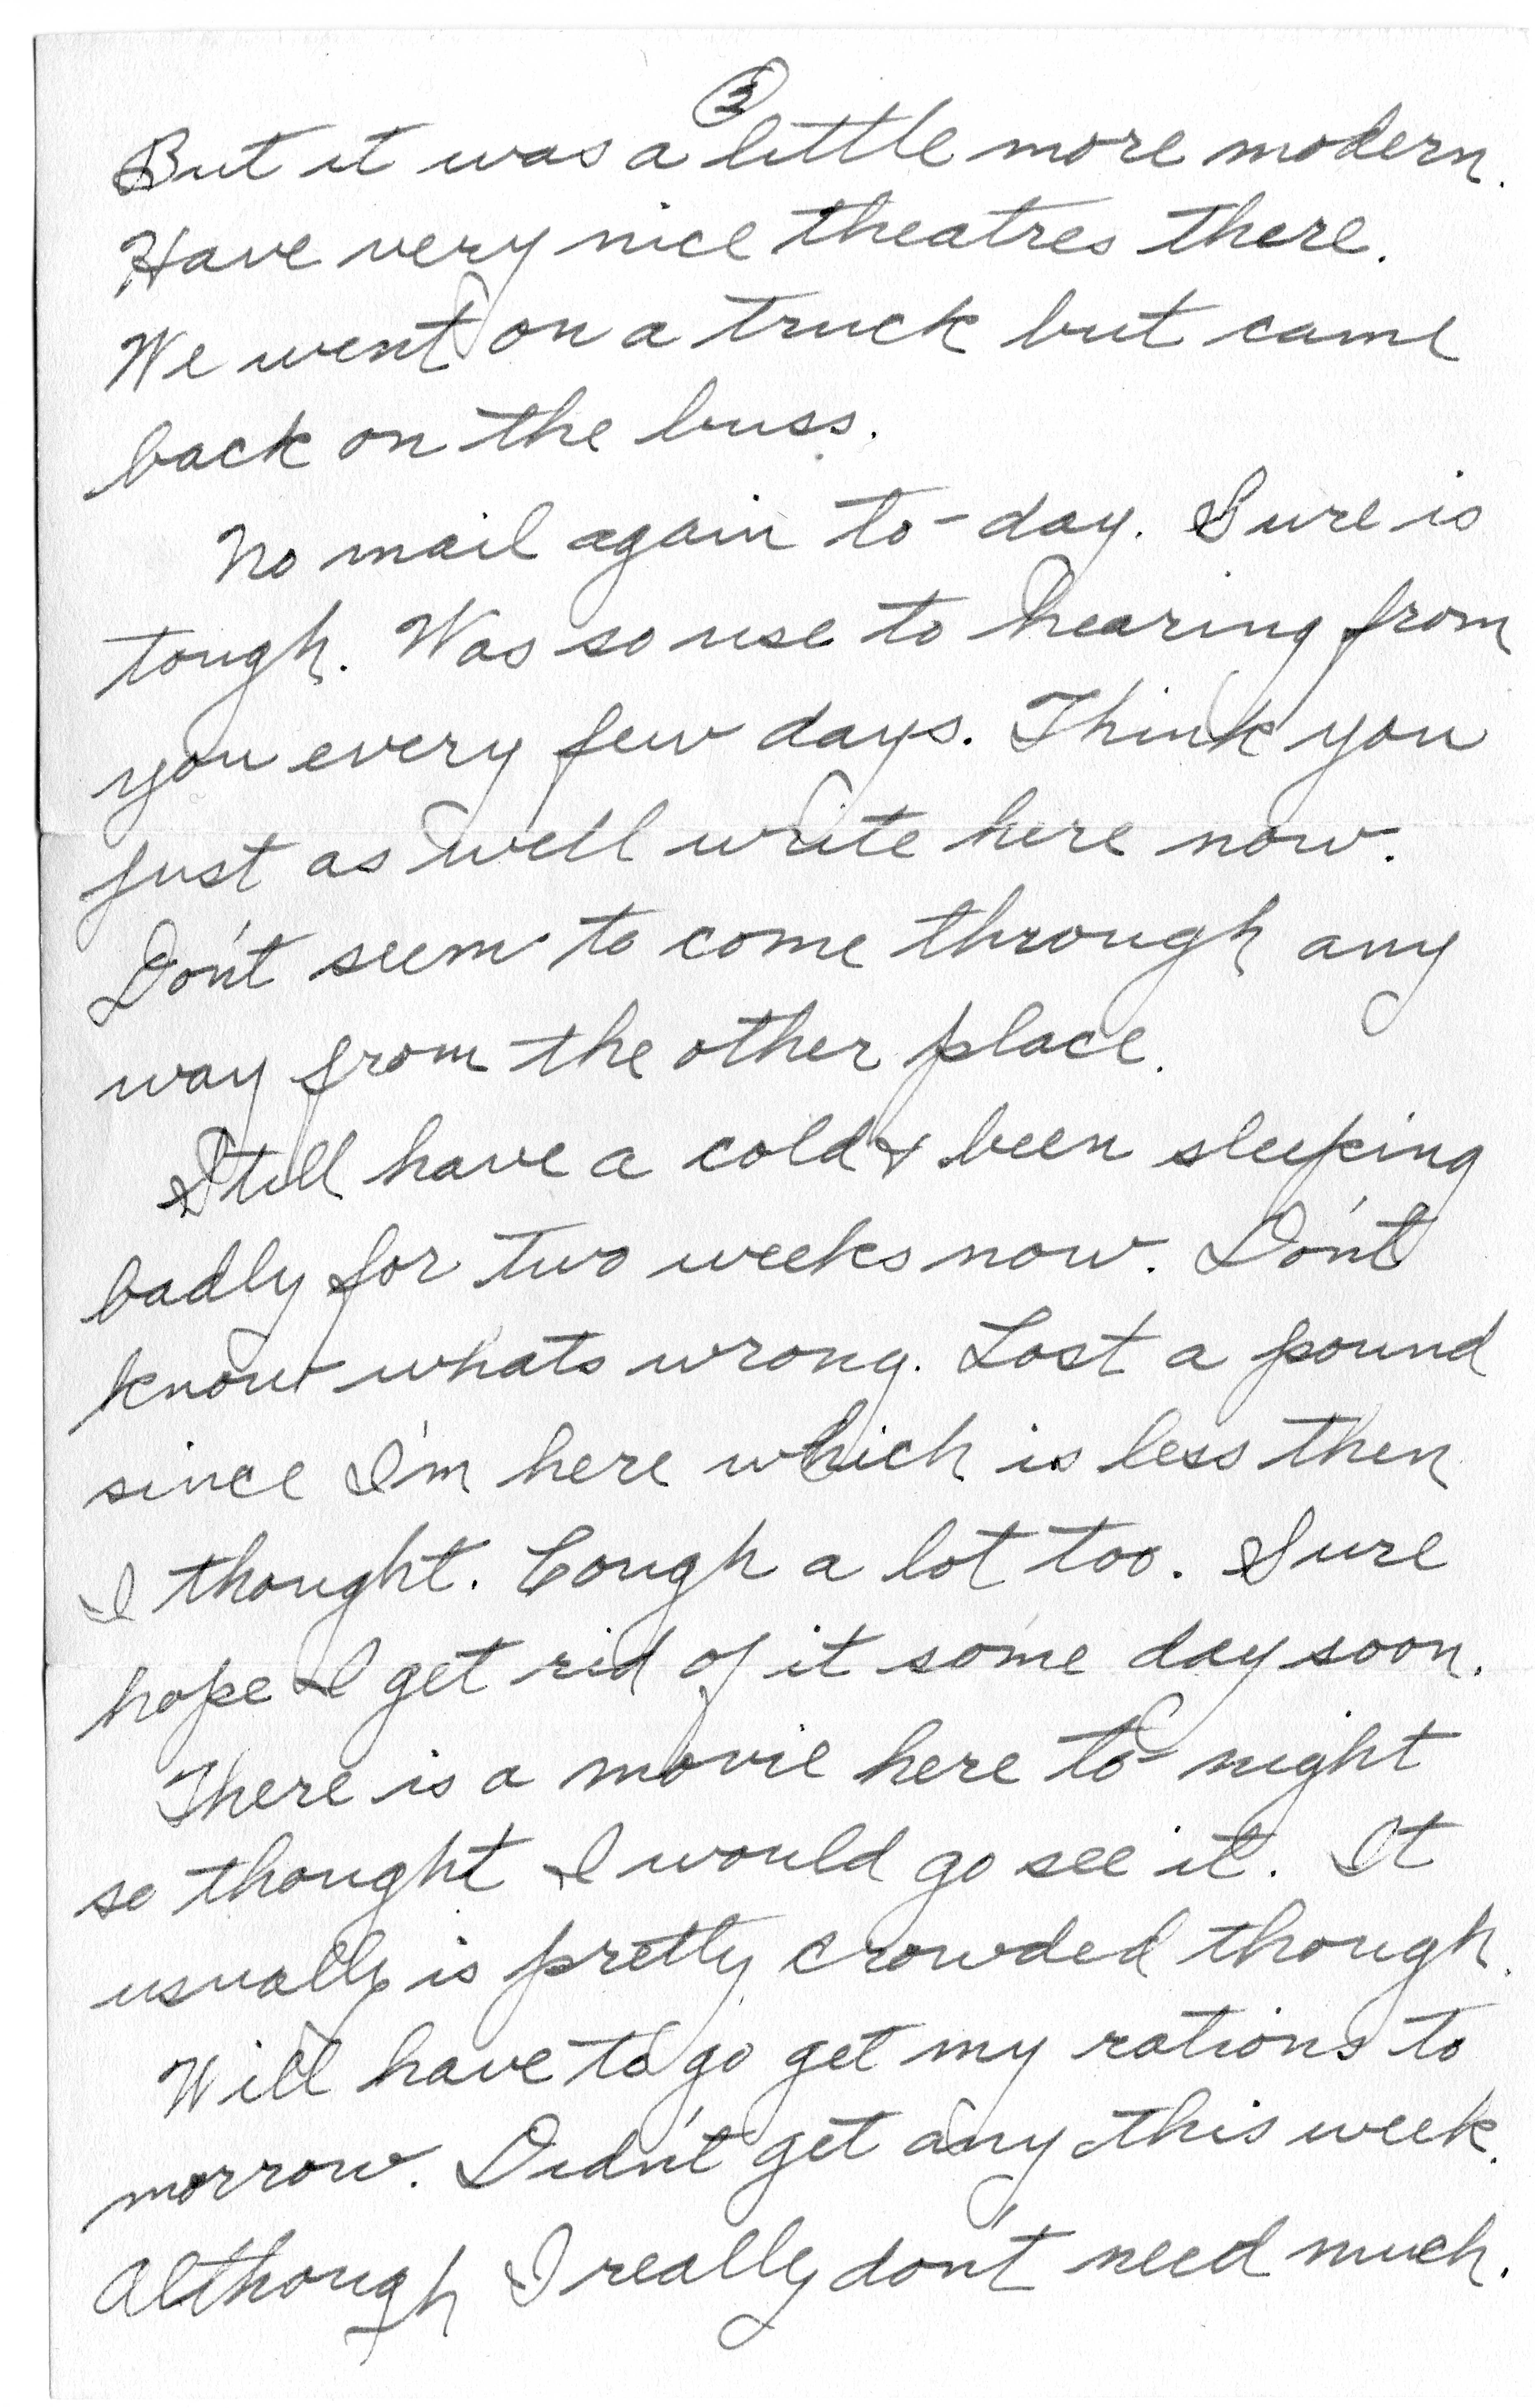 3
But it was a little more modern.
Have very nice theatres there.
We went on a truck but came
back on the buss.
No mail again to-day. Sure is
tough. Was so use to hearing from
you every few days. Think you
just as well write here now.
Don't seem to come through any
way from the other place.
Still have a cold & been sleeping
badly for two weeks now. Don't
know whats wrong. Lost a pound
since I'm here which is less then
I thought. Cough a lot too. Sure
hope I get rid of it some day soon.
There is a movie here to-night
so thought I would go see it. It
usually is pretty crowded though.
Will have to go get my rations to
morrow. Didn't get any this week.
Although I really don't need much.